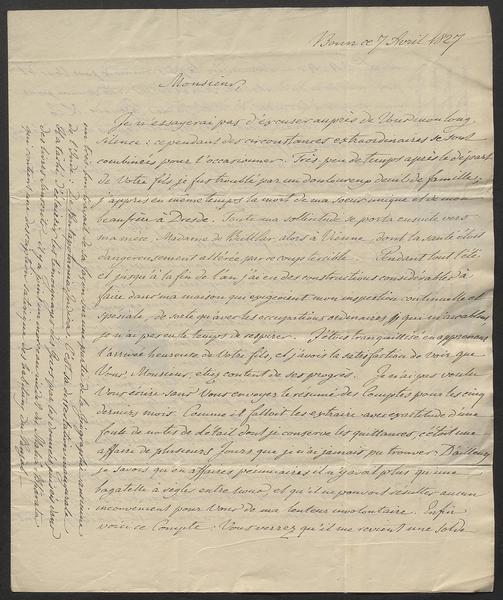 Bonn ce 7 Avril 1827
Monsieur,
Je n'essayerai pas d'excuser auprès de Vous mon long
silence: cependant des circonstances extraordinaires se sont
combinées pour l'occasionner. Très peu de temps après le départ
de Votre fils, je fus troublé par un douloureux deuil de famille;
j'appris en même temps la mort de ma soeur unique et de mon
beaufrère à Dresde. Toute ma sollicitude se porta ensuite vers
ma nièce, Madame de Buttlar, alors à Vienne dont la santé étoit
dangereusement altérée par ce coup terrible. Pendant tout l'été
et jusqu'à la fin de l'an j'ai eu des constructions considérables à
faire dans ma maison qui exigeoient mon inspection continuelle et
spéciale, de sorte qu'avec les occupations ordinaires qui m'accablent
je n'ai pas eu le temps de respirer. J'étois tranquillisé en apprenant
l'arrivée heureuse de Votre fils, et j'avois la satisfaction de voir que
Vous, Monsieur, étiez content de ses progrès. Je n'ai pas voulu
Vous écrire sans Vous envoyer le resumé des Comptes pour les cinq
derniers mois. Comme il falloit les extraire avec exactitude d'une
foule de notes de détail dont je conserve les quittances, c'étoit une
affaire de plusieurs jours que je n'ai jamais pu trouver. D'ailleurs
je savois qu'en affaires pécuniaires il n'y avait plus qu'une
bagatelle à règler entre nous, et qu'il ne pouvoit résulter aucun
inconvenient pour Vous de ma lenteur involontaire. Enfin
voici ce Compte: Vous verrez qu'il me revient une solde
un très bon travail de sa façon sur une partie de la Géographie ancienne
de l'Inde: de Pentapotamia Indica. C'est sa dissertation inaugurale
des livres classiques
qui contient une description satirique des habitans du Penjab.